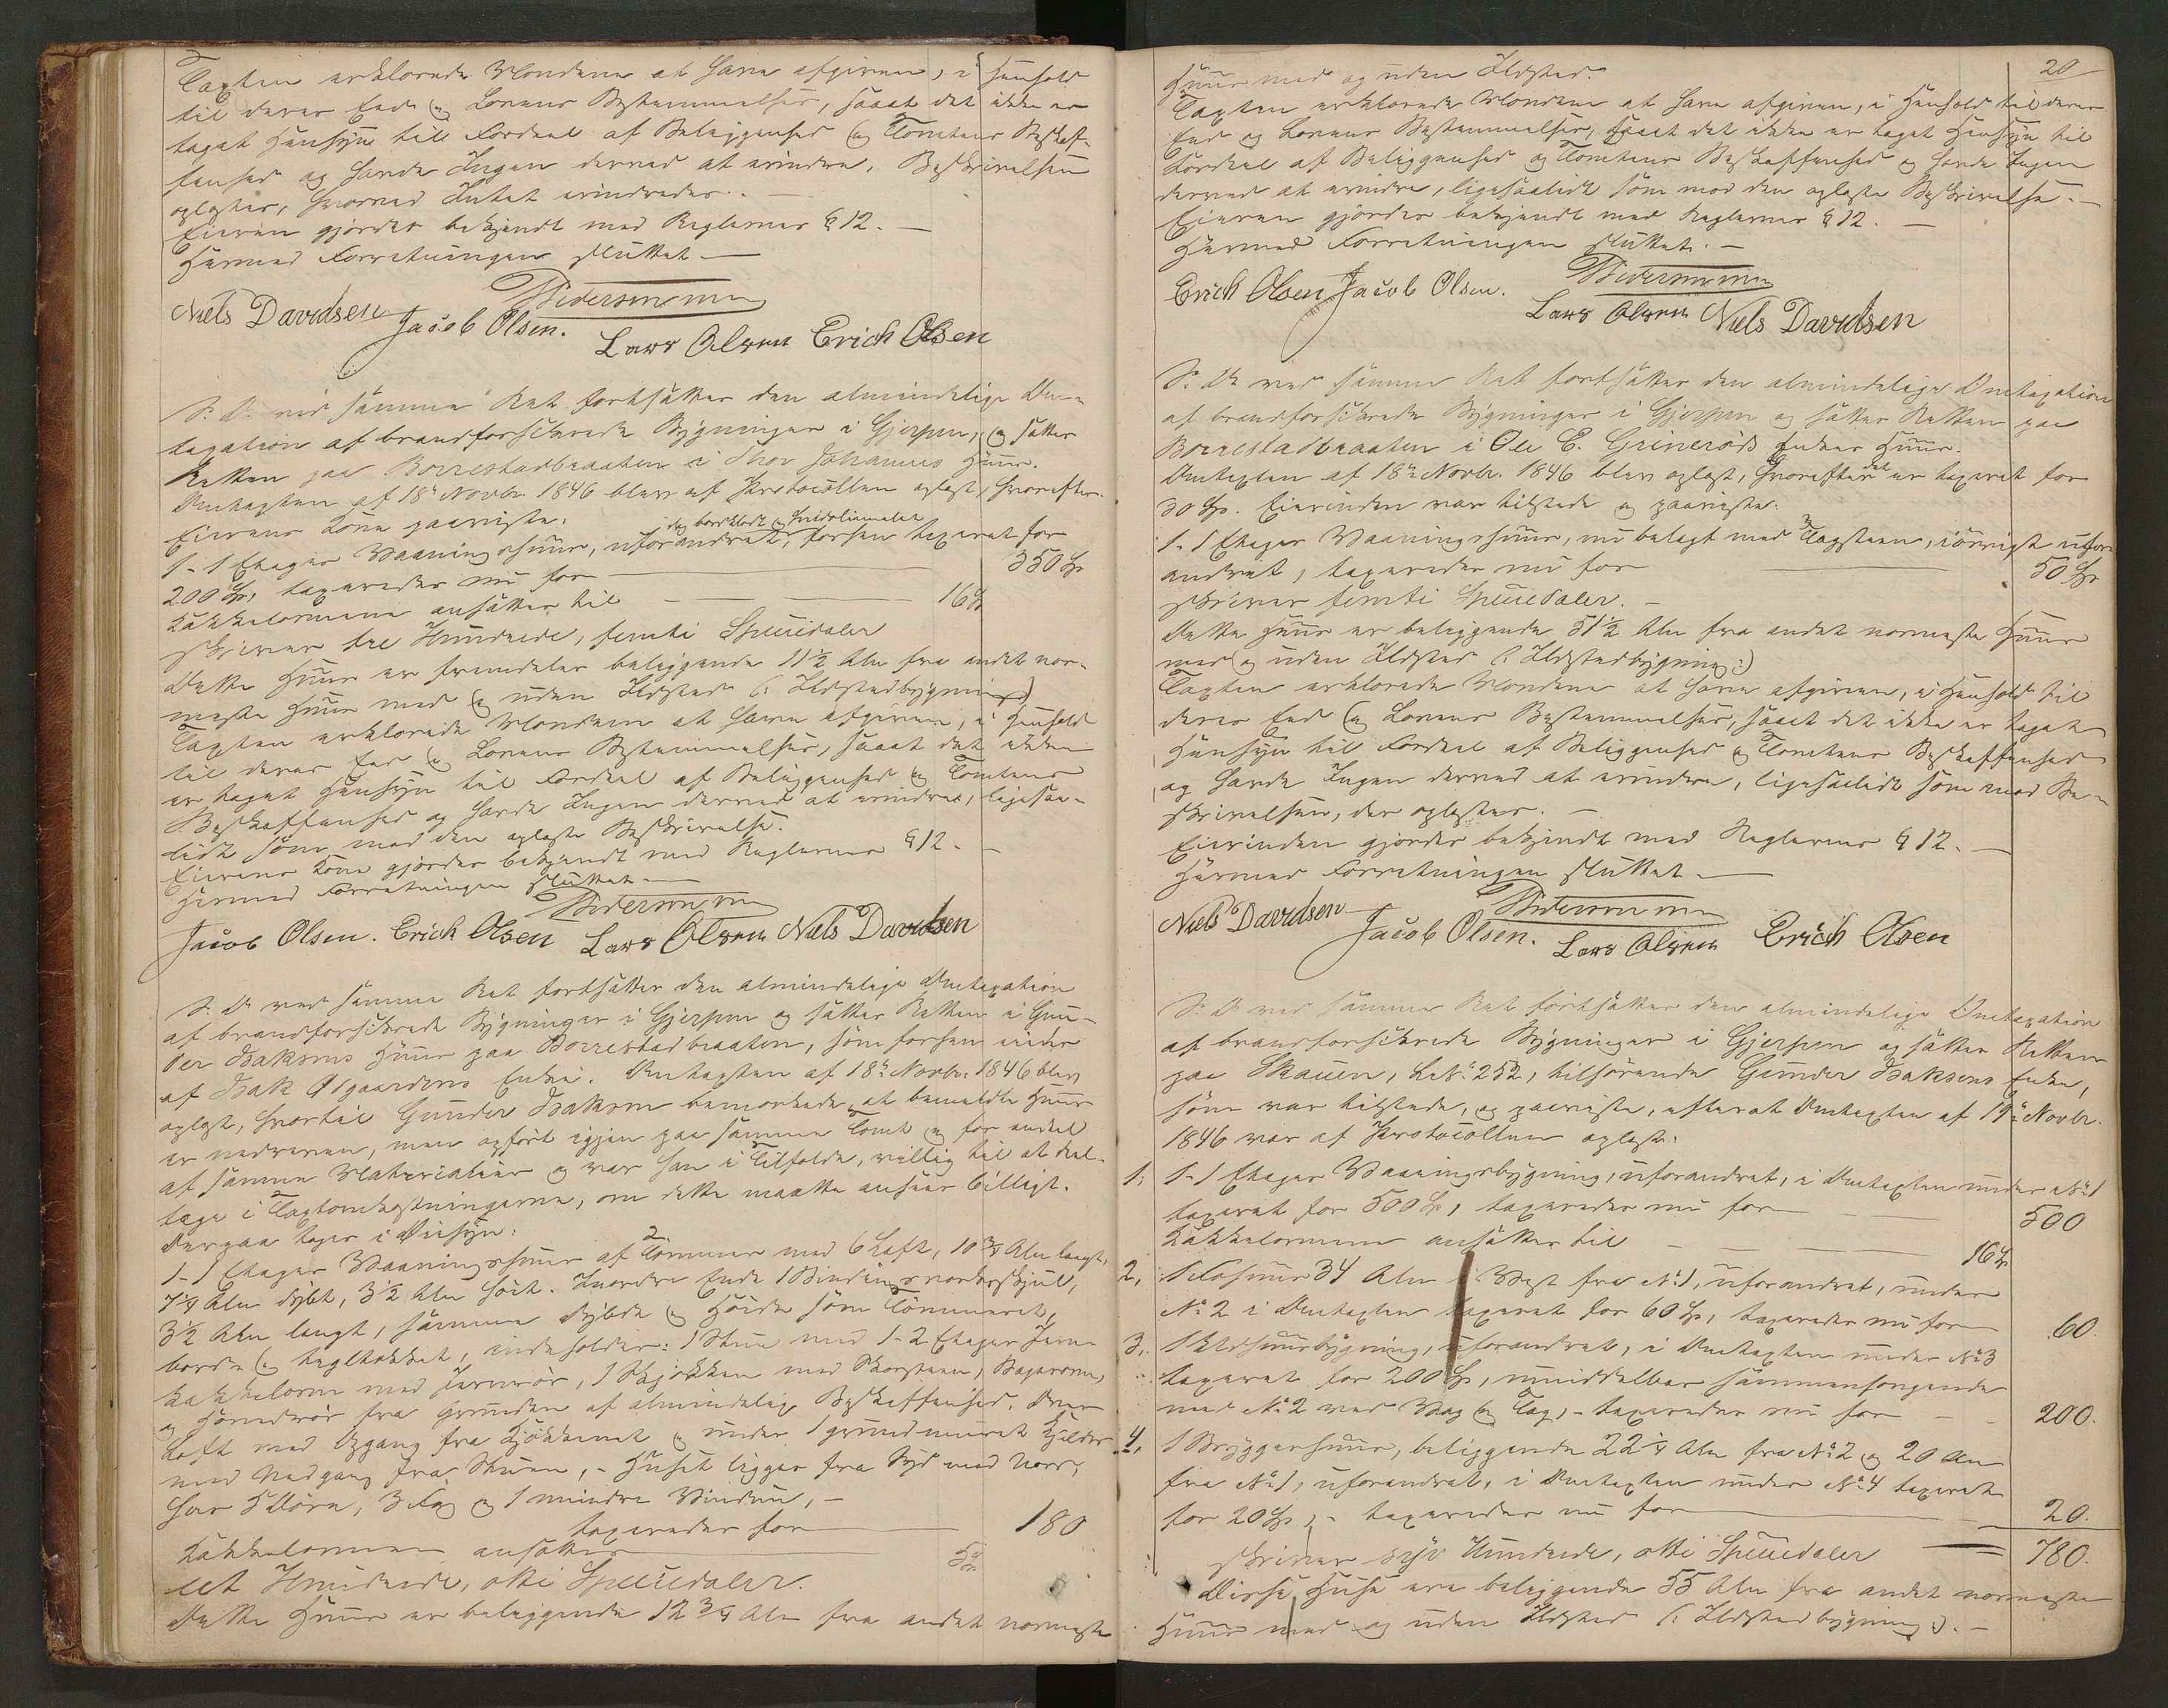 Taxten erklærede Mændene at have afgiven, i Henhold
til deres Eed og Lovens Bestemmelser, saaat det ikke er
taget Hensyn til Fordeel af Beliggenhed og Tomtens Beskaf-
fenhed og havde Ingen derved at erindre. Beskrivelsen
oplæstes, hvorved Intet erindredes.
Eieren gjordes bekjendt med Reglernes § 12. —
Hermed Forretningen sluttet —
Niels Davidsen Jacob Olsen. Lars Olsen Erich Olsen
S. D. ved samme Ret fortsattes den almindelige Om-
taxation af brandforsikrede Bygninger i Gjerpen, og sattes
Retten paa Borrestadbraaten i Thor Johannes Huus.
Omtaxten af 18de Novbr. 1846 blev af Protocollen oplæst, hvorefter
Eierens Kone paaviste:
og bordklædt og hvidoliemalet
1 - 1 Etages Vaaningshuus, uforandret, forhen taxeret for
200 Sp, taxeredes nu for — 350 Sp
Kakkelovnene ansattes til — 16 Sp
skriver tre Hundrede, femti Speciedaler
Dette Huus er fremdeles beliggende 11 ½ Alen fra andet nær-
meste Huus med og uden Ildsted (: Ildstedbygning)
Taxten erklærede Mændene at have afgiven, i Henhold
til deres Eed og Lovens Bestemmelser, saaat det ikke
er taget Hensyn til Fordeel af Beliggenhed og Tomtens
Beskaffenhed og havde Ingen derved at erindre, ligesaa-
lidt som mod den oplæste Beskrivelse.
Eierens Kone gjordes bekjendt med Reglernes § 12. —
Hermed Forretningen sluttet. —
Jacob Olsen. Erich Olsen Lars Olsen Niels Davidsen
S. D. ved samme Ret fortsattes den almindelige Omtaxation
af brandforsikrede Bygninger i Gjerpen og sattes Retten i Gun-
der Isaksens Huus paa Borrestadbraaten, som forhen eiedes
af Isak Øigaardens Enke. Omtaxten af 18de Novbr. 1846 blev
oplæst, hvortil Gunder Isaksen bemærkede, at bemeldte Huus
er nedreven, men opført igjen paa samme Tomt og for endeel
af samme Materialier og var han i Tilfælde, villig til at del-
tage i Taxtomkostningerne, om dette maatte ansees billigt.
Derpaa toges i Øiesyn:
1 - 1 Etages Vaaningshuus af Tømmer med 6 Laft, 10 ¾ Alen langt,
7 ¼ Alen dybt, 3 ½ Alen høit. I nordre Ende 1 Bindingsværksskjul,
3 ½ Alen langt, samme Dybde og Høide som Tømmeret,
borde og tegltækket, indeholder: 1 Stue med 1 - 2 Etages Jern
Kakkelovn med Jernrør, 1 Kjøkken med Skorsteen, Bagerovn,
og Høiedrør fra Grunden af almindelig Beskaffenhed. Over
Loft med Opgang fra Kjøkkenet og under 1 grundmuret Kjelder
med Nedgang fra Stuen, - Huset ligger fra Syd mod Nord,
har 5 Døre, 3 Fag og 1 mindre Vindue, -
taxeredes for — 180
Kakkelovnen ansattes — 5 Sp
eet Hundrede, otti Speciedaler.
Dette Huus er beliggende 12 ¾ Alen fra andet nærmeste
20
Huus med og uden Ildsted.
Taxten erklærede Mændene at have afgiven, i Henhold til deres
Eed og Lovens Bestemmelser, saaat det ikke er taget Hensyn til
Fordeel af Beliggenhed og Tomtens Beskaffenhed og havde Ingen
derved at erindre, ligesaalidt som mod den oplæste Beskrivelse. —
Eieren gjordes bekjendt med Reglernes § 12. —
Hermed Forretningen sluttet. —
Erich Olsen Jacob Olsen. Lars Olsen Niels Davidsen
S. D. ved samme Ret fortsattes den almindelige Omtaxation
af brandforsikrede Bygninger i Gjerpen og sattes Retten paa
Borrestadbraaten i Ole C. Grinerøds Enkes Huus.
Omtaxten af 18de Novbr. 1846 blev oplæst, hvorefter det er taxeret for
30 Sp. Eierinden var tilstede og paaviste:
1 - 1 Etages Vaaningshuus, nu belagt med Tagsteen, iøvrigt ufor-
andret, taxeredes nu for — 50 Sp
skriver femti Speciedaler. —
Dette Huus er beliggende 51 ½ Alen fra andet nærmeste Huus
med og uden Ildsted (: Ildstedbygning :)
Taxten erklærede Mændene at have afgiven, i Henhold til
deres Eed og Lovens Bestemmelser, saaat det ikke er taget
Hensyn til Fordeel af Beliggenhed og Tomtens Beskaffenhed
og havde Ingen derved at erindre, ligesaalidt som mod Be-
skrivelsen, der oplæstes. —
Eierinden gjordes bekjendt med Reglernes § 12. —
Hermed Forretningen sluttet. —
Niels Davidsen Jacob Olsen. Lars Olsen Erich Olsen
S. D. ved samme Ret fortsattes den almindelige Omtaxation
af brandforsikrede Bygninger i Gjerpen og sattes Retten
paa Skauen, L. No. 252, tilhørende Gunder Isaksens Enke,
som var tilstede, og paaviste, efterat Omtaxten af 19de Novbr.
1846 var af Protocollen oplæst:
1. 1 - 1 Etages Vaaningsbygning, uforandret, i Omtaxten under No. 1
taxeret for 500 Sp, taxeredes nu for — 500
Kakkelovnene ansattes til — 16 Sp
2. 1 Fæhuus 34 Alen i Vest fra No. 1, uforandret, under
No. 2 i Omtaxten taxeret for 60 Sp, taxeredes nu for — 60.
3. 1 Udhuusbygning, uforandret, i Omtaxten under No. 3
taxeret for 200 Sp, umiddelbar sammenhængende
med No. 2 ved Væg og Tag, - taxeredes nu for — 200.
4. 1 Bryggerhuus, beliggende 22 ¼ Alen fra No. 2 og 20 Alen
fra No. 1, uforandret, i Omtaxten under No. 4 taxeret
for 20 Sp, - taxeredes nu for — 20.
skriver syv Hundrede, otti Speciedaler — 780.
Disse Huse ere beliggende 55 Alen fra andet nærmeste
Huus med og uden Ildsted (: Ildstedbygning :). —